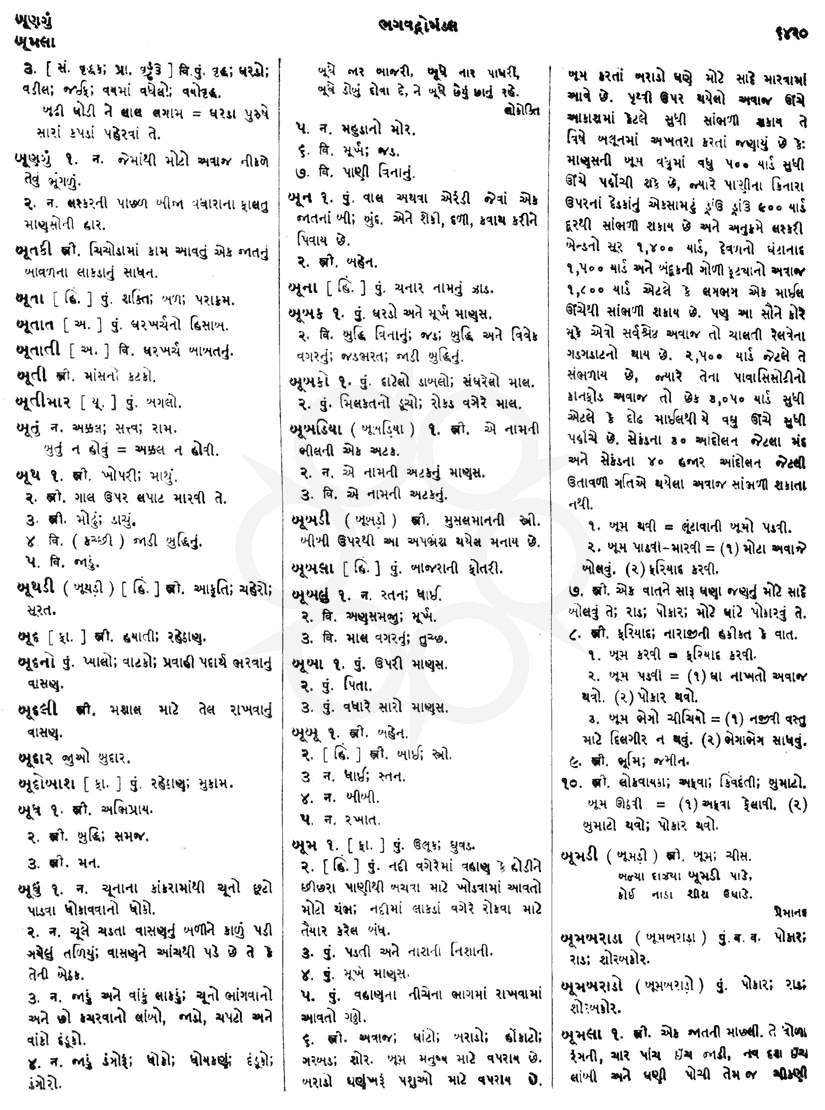 બૂણગું
બૂમલા
ભગવદ્ગોમંડલ
૬૪૨૦
૩. [ સં. વૃદ્ધક; પ્રા. વુડ્ઢ ] વિ. પું. વૃદ્ધ; ઘરડો;
વડીલ; જઈફ; વયમાં વધેલો; વયોવૃદ્ધ.
બૂઢી ઘોડી ને લાલ લગામ = ઘરડા પુરુષે
સારાં કપડાં પહેરવાં તે.
બૂણગું ૧. ન. જેમાંથી મોટો અવાજ નીકળે
તેવું ભૂંગળું.
૨. ન. લશ્કરની પાછળ બીજા વધારાના ફાલતુ
માણસોની હાર.
બૂતકી સ્ત્રી. ચિચોડામાં કામ આવતું એક જાતનું
બાવળના લાકડાનું સાધન.
બૂતા [ હિં. ] પું. શક્તિ; બળ; પરાક્રમ.
બૂતાત [ અ. ] પું. ઘરખર્ચનો હિસાબ.
બૂતાતી [ અ. ] વિ. ઘરખર્ચ બાબતનું.
બૂતી સ્ત્રી. માંસનો કટકો.
બૂતીમાર [ યૂ. ] પું. બગલો.
બૂતું ન. અક્કલ; સત્ત્વ; રામ.
બુતું ન હોવું = અક્કલ ન હોવી.
બૂથ ૧. સ્ત્રી. ખોપરી; માથું.
૨. સ્ત્રી. ગાલ ઉપર લપાટ મારવી તે.
૩. સ્ત્રી. મોઢું; ડાચું.
૪. વિ. ( કચ્છી ) જાડી બુદ્ધિનું.
૫. વિ. જાડું.
બૂથડી ( બૂથડી ) [ હિં. ] સ્ત્રી. આકૃતિ; ચહેરો;
સૂરત.
બૂદ [ ફા. ] સ્ત્રી. હયાતી; રહેઠાણ.
બૂદનો પું. પ્યાલો; વાટકો; પ્રવાહી પદાર્થ ભરવાનું
વાસણ.
બૂદલી સ્ત્રી. મશાલ માટે તેલ રાખવાનું
વાસણ.
બૂદાર જુઓ બુદાર.
બૂદોબાશ [ ફા. ] પું. રહેઠાણ; મુકામ.
બૂધ ૧. સ્ત્રી. અભિપ્રાય.
૨. સ્ત્રી. બુદ્ધિ; સમજ.
૩. સ્ત્રી. મન.
બૂધું ૧. ન. ચૂનાના કાંકરામાંથી ચૂનો છૂટો
પાડવા ધોકાવવાનો ધોકો.
૨. ન. ચૂલે ચડતા વાસણનું બળીને કાળું પડી
ગયેલું તળિયું; વાસણને આંચથી પડે છે તે કે
તેની બેઠક.
૩. ન. જાડું અને વાંકું લાકડું; ચૂનો ભાંગવાનો
અને છો કચરવાનો લાંબો, જાડો, ચપટો અને
વાંકો દંડૂકો.
૪. ન. જાડું ડંગોરું; ધોકો; ધોયકણું; દંડૂકો;
ડંગોરો.
બૂધે જાર બાજરી, બૂધે નાર પાધરી,
બૂધે ડોબું દોવા દે, ને બૂધે છૈયું છાનું રહે.
લોકોક્તિ
૫. ન. મહુડાનો મોર.
૬. વિ. મૂર્ખ; જડ.
૭. વિ. પાણી વિનાનું.
બૂન ૧. પું. વાલ અથવા એરંડી જેવાં એક
જાતનાં બી; બુંદ. એને શેકી, દળી, કવાથ કરીને
પિવાય છે.
૨. સ્ત્રી. બહેન.
બૂના [ હિં. ] પું. ચનાર નામનું ઝાડ.
બૂબક ૧. પું. ઘરડો અને મૂર્ખ માણસ.
૨. વિ. બુદ્ધિ વિનાનું; જડ; બુદ્ધિ અને વિવેક
વગરનું; જડભરત; જાડી બુદ્ધિનું.
બૂબકો ૧. પું. દાટેલો ડાબલો; સંઘરેલો માલ.
૨. પું. મિલકતનો ડૂચો; રોકડ વગેરે માલ.
બૂબડિયા ( બૂબડ઼િયા ) ૧. સ્ત્રી. એ નામની
ભીલની એક અટક.
૨. ન. એ નામની અટકનું માણસ.
૩. વિ. એ નામની અટકનું.
બૂબડી ( બૂબડ઼ી ) સ્ત્રી. મુસલમાનની સ્ત્રી.
બીબી ઉપરથી આ અપભ્રંશ થયેલ મનાય છે.
બૂબલા [ હિં. ] પું. બાજરાની ફોતરી.
બૂબલું ૧. ન. સ્તન; ધાઈ.
૨. વિ. અણસમજુ; મૂર્ખ.
૩. વિ. માલ વગરનું; તુચ્છ.
બૂબા ૧. પું. ઉપરી માણસ.
૨. પું. પિતા.
૩. પું. વધારે સારો માણસ.
બૂબૂ ૧. સ્ત્રી. બહેન.
૨. [ હિં. ] સ્ત્રી. બાઈ; સ્ત્રી.
૩ ન. ધાઈ; સ્તન.
૪. ન. બીબી.
૫. ન. રખાત.
બૂમ ૧. [ ફા. ] પું. ઉલૂક; ઘુવડ.
૨. [ હિં. ] પું. નદી વગેરેમાં વહાણ કે હોડીને
છીછરા પાણીથી બચવા માટે ખોડવામાં આવતો
મોટો થંભ; નદીમાં લાકડાં વગેરે રોકવા માટે
તૈયાર કરેલ બંધ.
૩. પું. પડતી અને નારાની નિશાની.
૪. પું. મૂર્ખ માણસ.
૫. પું. વહાણના નીચેના ભાગમાં રાખવામાં
આવતો ગઠ્ઠો.
૬. સ્ત્રી. અવાજ; ઘાંટો; બરાડો; હોંકાટો;
ગરબડ; શોર. બૂમ મનુષ્ય માટે વપરાય છે.
બરાડો ઘણુંખરું પશુઓ માટે વપરાય છે.
બૂમ કરતાં બરાડો ઘણે મોટે સાદે મારવામાં
આવે છે. પૃથ્વી ઉપર થયેલો અવાજ ઊંચે
આકાશમાં કેટલે સુધી સાંભળી શકાય તે
વિષે બલૂનમાં અખતરા કરતાં જણાયું છે કેઃ
માણસની બૂમ વધુમાં વધુ ૫૦૦ યાર્ડ સુધી
ઊંચે પહોંચી શકે છે, જ્યારે પાણીના કિનારા
ઉપરનાં દેડકાંનું એકસામટું ડ્રાંઉં ડ્રાંઉં ૯૦૦ યાર્ડ
દૂરથી સાંભળી શકાય છે અને અનુક્રમે લશ્કરી
બેન્ડનો સૂર ૧,૪૦૦ યાર્ડ, દેવળનો ઘંટાનાદ
૧,૫૦૦ યાર્ડ અને બંદૂકની ગોળી ફૂટ્યાનો અવાજ
૧,૮૦૦ યાર્ડ એટલે કે લગભગ એક માઈલ
ઊંચેથી સાંભળી શકાય છે. પણ આ સૌને કોરે
મૂકે એવો સર્વશ્રેષ્ઠ અવાજ તો ચાલતી રેલવેના
ગડગડાટનો થાય છે. ૨,૫૦૦ યાર્ડ જેટલે તે
સંભળાય છે, જ્યારે તેના પાવાસિસોટીનો
કાનફોડ અવાજ તો છેક ૩,૦૫૦ યાર્ડ સુધી
એટલે કે દોઢ માઈલથીયે વધુ ઊંચે સુધી
પહોંચે છે. સેકંડના ૩૦ આંદોલન જેટલા મંદ
અને સેકંડના ૪૦ હજાર આંદોલન જેટલી
ઉતાવળી ગતિએ થયેલા અવાજ સાંભળી શકાતા
નથી.
૧. બૂમ થવી = લૂંટાવાની બૂમો પડવી.
૨. બૂમ પાડવી–મારવી = (૧) મોટા અવાજે
બોલવું. (૨) ફરિયાદ કરવી.
૭. સ્ત્રી. એક વાતને સારુ ઘણા જણનું મોટે સાદે
બોલવું તે; રાડ; પોકાર; મોટે ઘાંટે પોકારવું તે.
૮. સ્ત્રી. ફરિયાદ; નારાજીની હકીકત કે વાત.
૧. બૂમ કરવી = ફરિયાદ કરવી.
૨. બૂમ પડવી = (૧) ધા નાખતો અવાજ
થવો. (૨) પોકાર થવો.
૩. બૂમ ભેગો ચીચિયો = (૧) નજીવી વસ્તુ
માટે દિલગીર ન થવું. (૨) ભેગાભેગ સાધવું.
૯. સ્ત્રી. ભૂમિ; જમીન.
૧૦. સ્ત્રી. લોકવાયકા; અફવા; કિંવદંતી; બુમાટો.
બૂમ ઊઠવી = (૧) અફવા ફેલાવી. (૨)
બુમાટો થવો; પોકાર થવો.
બૂમડી ( બૂમડ઼ી ) સ્ત્રી. બૂમ; ચીસ.
બળ્યા દાઝ્યા બૂમડી પાડે,
કોઈ નાઠા શીશ ઉઘાડે.
પ્રેમાનંદ
બૂમબરાડા ( બૂમબરાડ઼ા ) પું. બ. વ. પોકાર;
રાડ; શોરબકોર.
બૂમબરાડો ( બૂમબરાડ઼ો ) પું. પોકાર; રાડ;
શોરબકોર.
બૂમલા ૧. સ્ત્રી. એક જાતની માછલી. તે ધોળા
રંગની, ચાર પાંચ ઇંચ જાડી, નવ દશ ઇંચ
લાંબી અને ઘણી પોચી તેમ જ ચીકણી